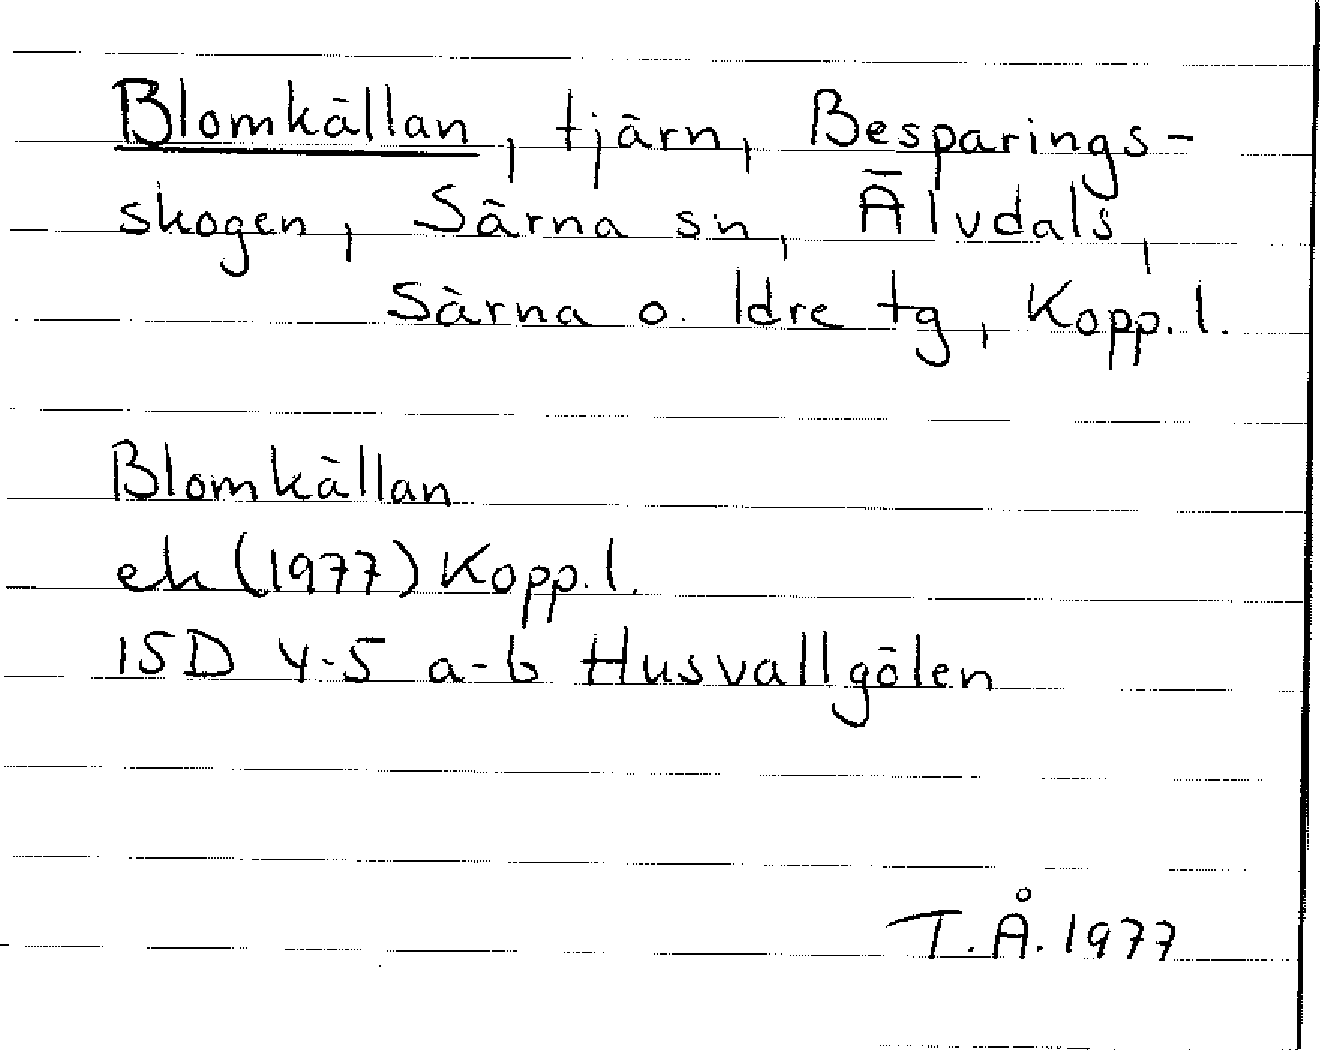 Blomkällan, tjärn, Besparings-
skogen, Särna sn, Älvdals,
Särna o. Idre tg, Kopp. l.
Blomkällan
ek (1977) Kopp. l.
15D 4-5 a-b Husvallgölen
T.Å. 1977